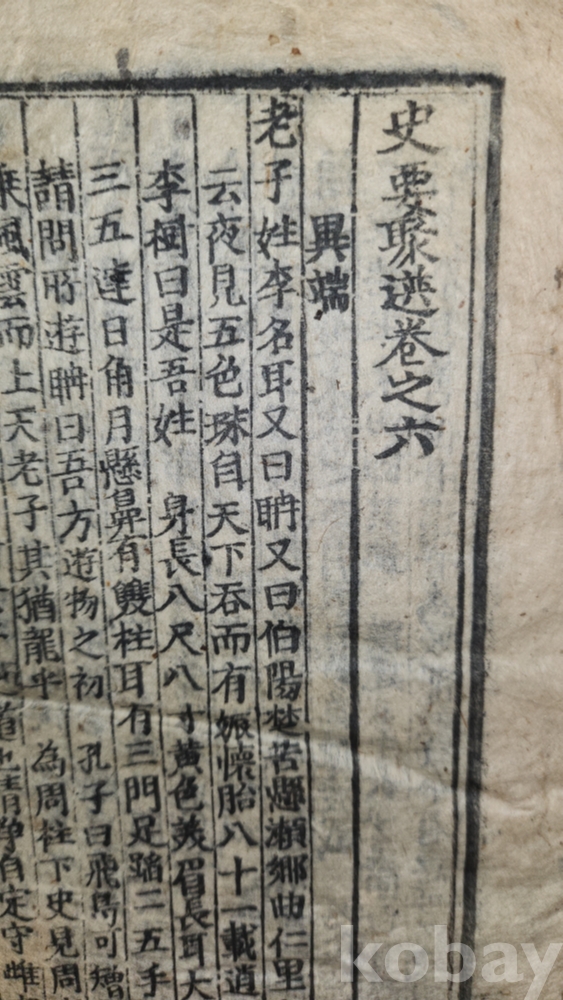 史要聚選卷之六
異端
老子姓李名耳又曰聃又曰伯陽楚苦縣瀨鄉曲仁里
云夜見五色珠自天下吞而有娠懷胎八十一載逍
李樹曰是吾姓 身長八尺八寸黃色美眉長耳大
三五達日角月懸鼻有雙柱耳有三門足蹈二五手
請問所遊聃曰吾方遊物之初 孔子曰飛鳥可矰
乘風雲而上天老子其猶龍乎 為周柱下史見周
道也清淨自定守雌
kobay